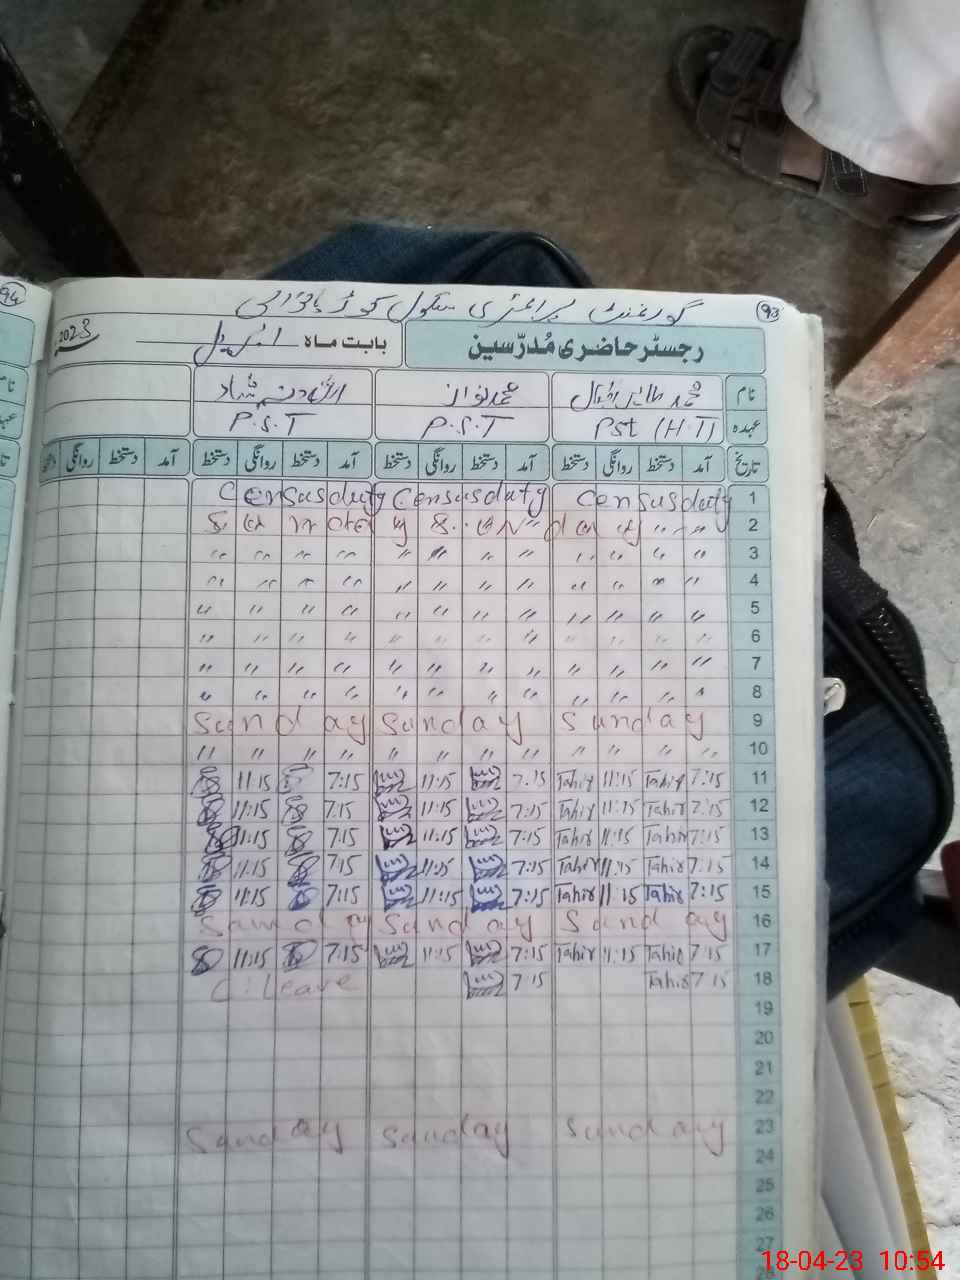 93
94
گورنمنٹ پرائمری سکول کوٹ
رجسٹر حاضری مُدرّسین
بابت ماہ اپریل 2023
نام محمد طاہر اقبال محمد نواز
عہدہ Pst (H.T) P.S.T P.S.T
تاریخ آمد دستخط روانگی دستخط آمد دستخط روانگی دستخط آمد دستخط روانگی دستخط آمد دستخط روانگی
Census duty Census duty Census duty 1
2
" " " " " " " " " " " " 3
" " " " " " " " " " " " 4
" " " " " " " " " " " " 5
" " " " " " " " " " " " 6
" " " " " " " " " " " " 7
" " " " " " " " " " " " 8
Sunday Sunday Sunday 9
" " " " " " " " " " " " 10
11:15 7:15 11:15 7:15 Tahir 11:15 Tahir 7:15 11
11:15 7:15 11:15 7:15 Tahir 11:15 Tahir 7:15 12
11:15 7:15 11:15 7:15 Tahir 11:15 Tahir 7:15 13
11:15 7:15 11:15 7:15 Tahir 11:15 Tahir 7:15 14
11:15 7:15 11:15 7:15 Tahir 11:15 Tahir 7:15 15
Sunday Sunday Sunday 16
11:15 7:15 11:15 7:15 Tahir 11:15 Tahir 7:15 17
C. Leave 7:15 Tahir 7:15 18
19
20
21
22
Sunday Sunday Sunday 23
24
25
26
27
18-04-23 10:54